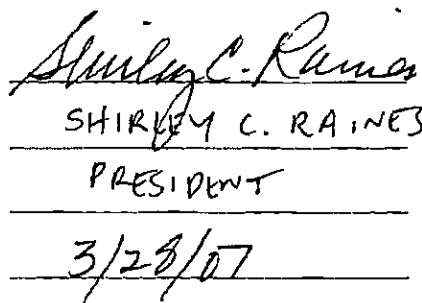 Shirley C. Raines
SHIRLEY C. RAINES
PRESIDENT
3/28/07